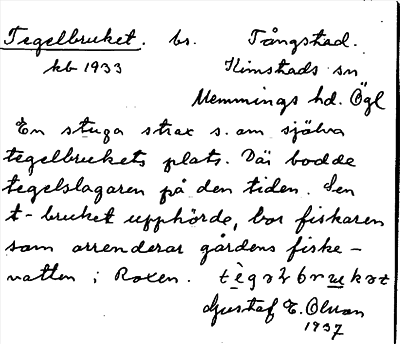 Tegelbruket. br. Tångstad.
kb 1933 Kimstads sn
Memmings hd. Ögl
En stuga strax s. om själva
tegelbrukets plats. Där bodde
tegelslagaren på den tiden. Sen
t-bruket upphörde, bor fiskaren
som arrenderar gårdens fiske-
vatten i Roxen.
Gustaf E. Olsson
1937